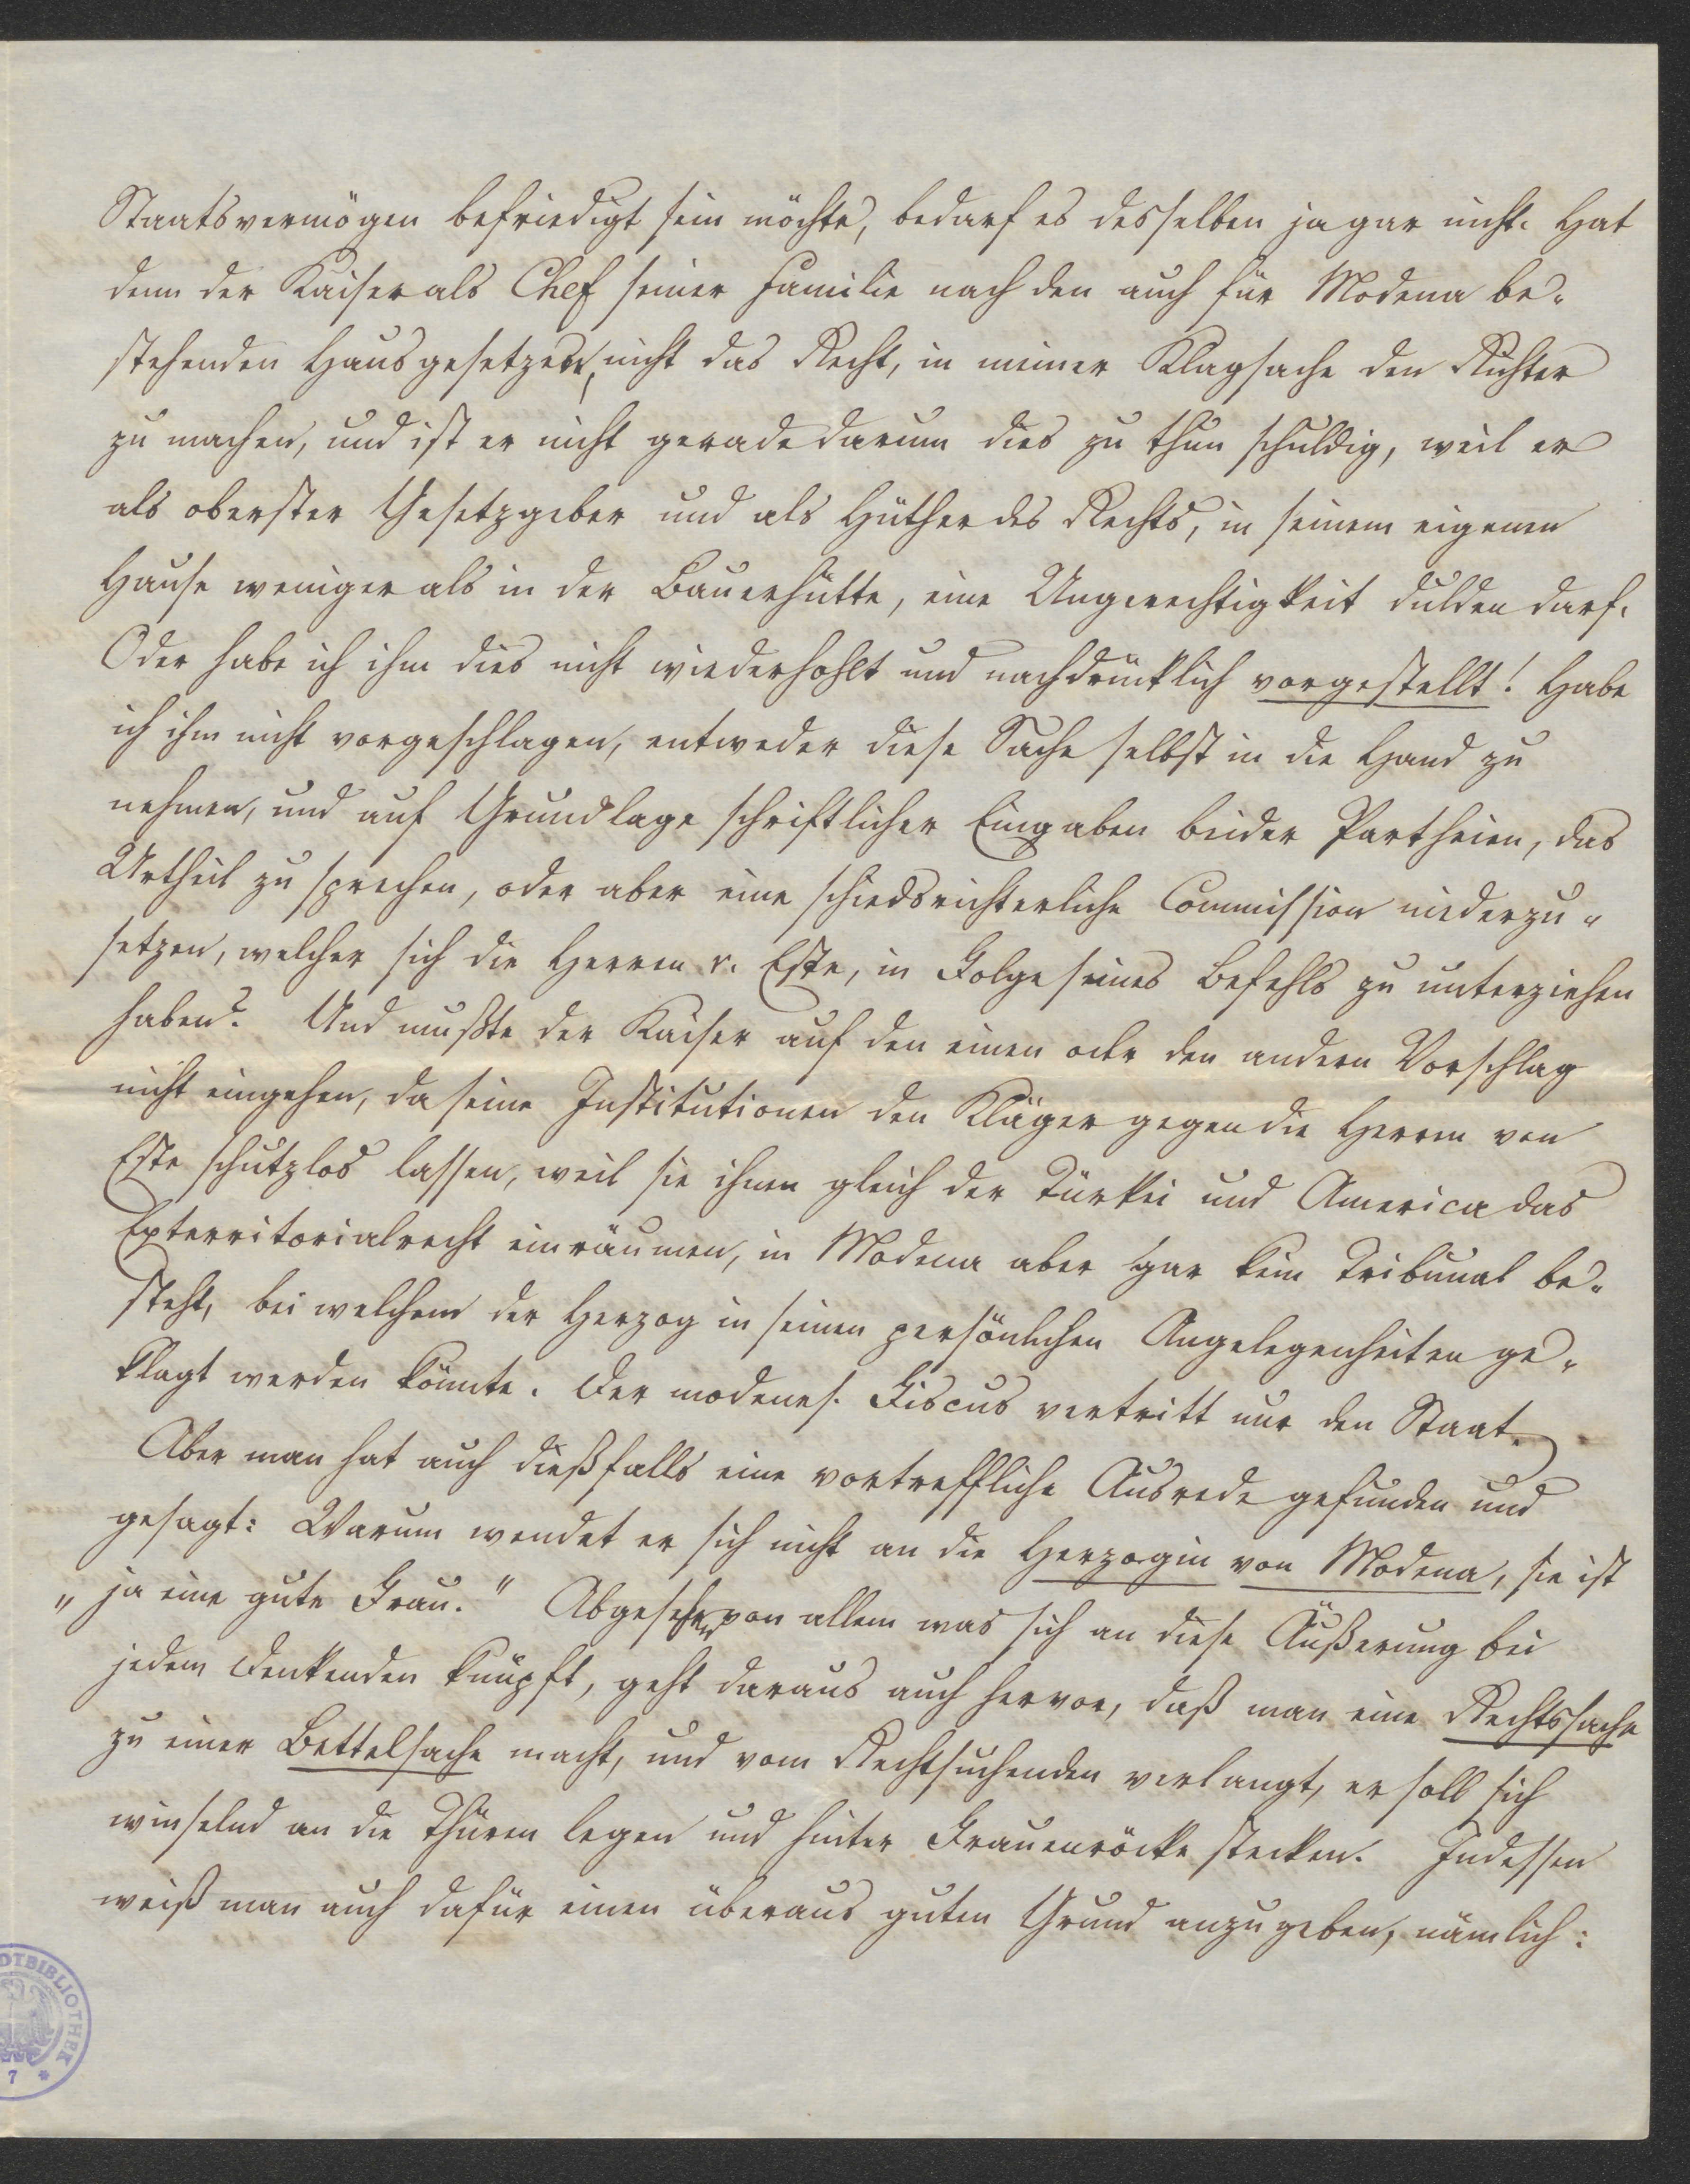 Staatsvermögen befriedigt sein möchte, bedarf es desselben ja gar nicht. Hat
denn der Kaiser als Chef seiner Familie nach den auch für Modena be-
stehenden Hausgesetzen, nicht das Recht, in meiner Klagsache den Richter
zu machen, und ist er nicht gerade darum dies zu thun schuldig, weil er
als oberster Gesetzgeber und als Hüther des Rechts, in seinem eigenen
Hause weniger als in der Bauerhütte, eine Ungerechtigkeit dulden darf.
Oder habe ich ihm dies nicht wiederhohlt und nachdrücklich vorgestellt! Habe
ich ihm nicht vorgeschlagen, entweder diese Sache selbst in die Hand zu
nehmen, und auf Grundlage schriftlicher Eingaben beider Partheien, das
Urtheil zu sprechen, oder aber eine schiedsrichterliche Commission niederzu-
setzen, welcher sich die Herren v. Este, in Folge seines Befehls zu unterziehen
haben? Und mußte der Kaiser auf den einen oder den andern Vorschlag
nicht eingehen, da seine Institutionen den Kläger gegen die Herren von
Este schutzlos lassen, weil sie ihnen gleich der Türkei und America das
Exterritorialrecht einräumen, in Modena aber gar kein Tribunal be-
steht, bei welchem der Herzog in seinen persönlichen Angelegenheiten ge-
klagt werden könnte. Der modenes. Fiscus vertritt nur den Staat.
Aber man hat auch dießfalls eine vortreffliche Ausrede gefunden und
gesagt: Warum wendet er sich nicht an die Herzogin von Modena, sie ist
„ja eine gute Frau." Abgesehen von allem was sich an diese Äußerung bei
jedem Denkenden knüpft, geht daraus auch hervor, daß man eine Rechtssache
zu einer Bettelsache macht, und vom Rechtsuchenden verlangt, er soll sich
winselnd an die Thüren legen und hinter Frauenröcke stecken. Indessen
weiß man auch dafür einen überaus guten Grund anzugeben, nämlich:
DTBIBLIOTHEK
7 *